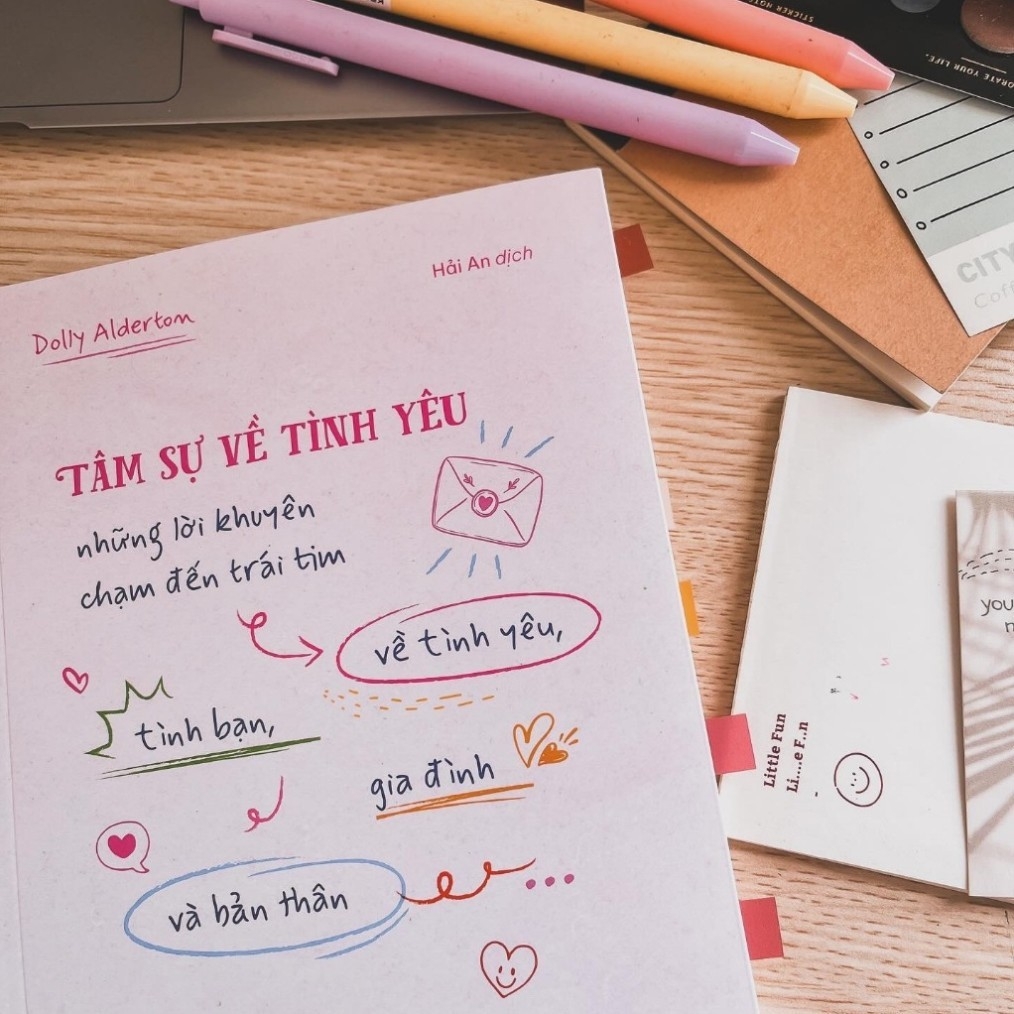 STICKER NOTE
ORATE YOUR LIFE.
CITY
Cof
Hải An dịch
Dolly Alderton
TÂM SỰ VỀ TÌNH YÊU
những lời khuyên
chạm đến trái tim
về tình yêu,
tình bạn,
gia đình
và bản thân
...
you
Little Fun
Li....e F..n